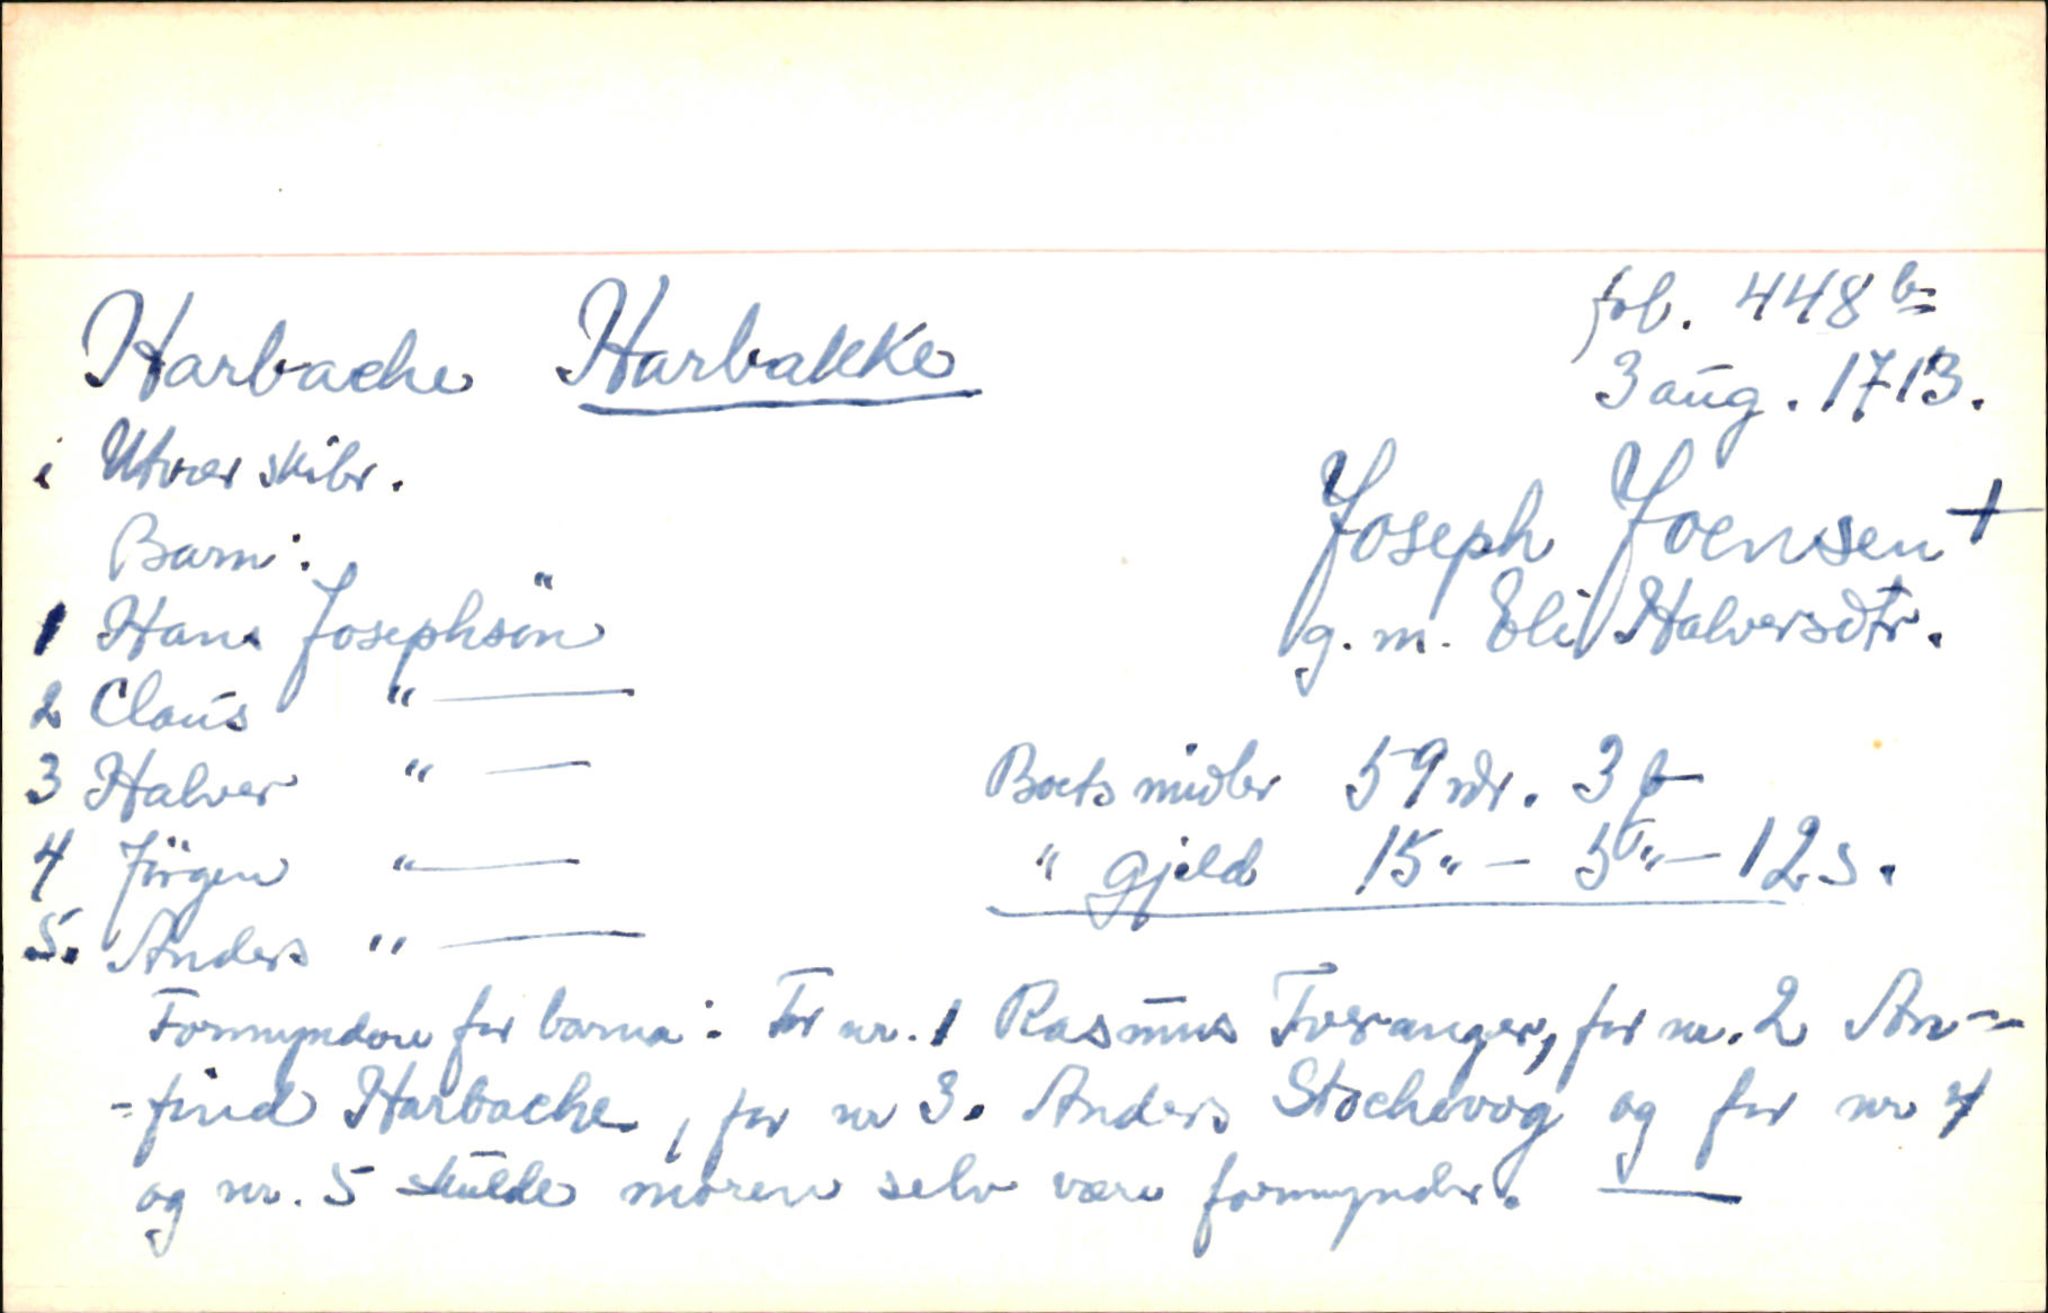 fol. 448 b
Harbache Harbakke
3 aug. 1713.
i Utvær skibr.
Joseph Joensen +
g. m. Eli Halversdtr.
Barn:
1 Hans Josephsön
2 Claus " —
3 Halver " —
4 Jörgen " —
5. Anders " —
Boets midler 59 rdr. 3 ƒ
" gjeld 15 " — 5 " — 12 s.
Formyndere for barna: For nr. 1 Rasmus Tveranger, for nr. 2 An-
-find Harbache, for nr 3. Anders Stochevog og for nr 4
og nr. 5 skulde moren selv være formynder.